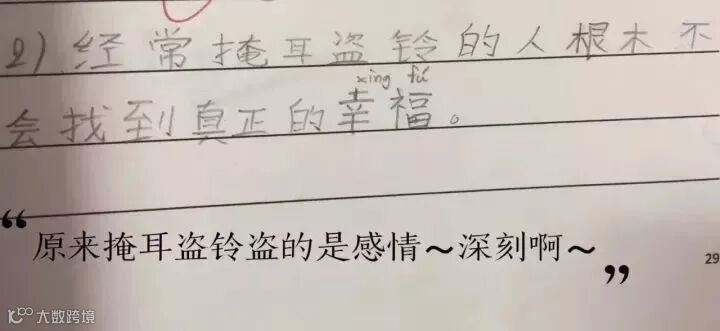 2) 经常掩耳盗铃的人根木不
xìng fú
会找到真正的幸福。
“原来掩耳盗铃盗的是感情～深刻啊～”
29
大数跨境